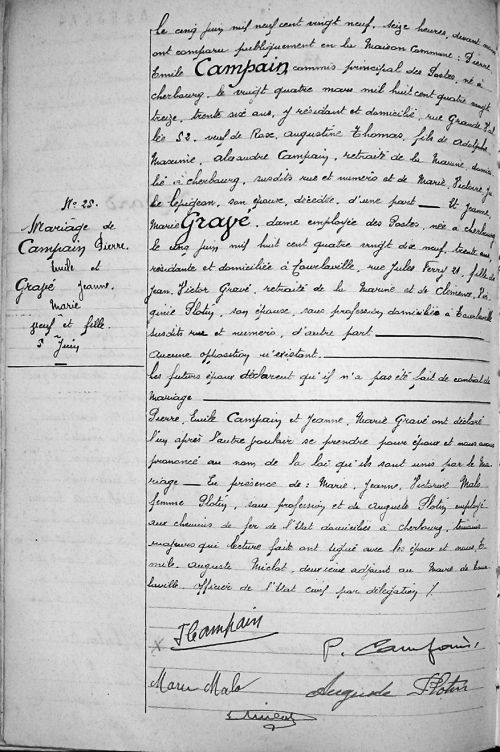 Le cinq juin mil neuf cent vingt neuf, seize heures, devant nous
ont comparu publiquement en la Maison Commune : Pierre
Emile Campain, commis principal des Postes, né à
Cherbourg, le vingt quatre mars mil huit cent quatre vingt
treize, trente six ans, y résidant et domicilié, rue Grande Val
lée 52, veuf de Rose, Augustine Thomas, fils de Adolphe
Maxime, Alexandre Campain, retraité de la Marine, domici
lié à Cherbourg, susdits rue et numéro et de Marie,
le Lepigeon, son épouse, décédée, d'une part — Et Jeanne,
Marie Gravé, dame employée des Postes, née à Cherbourg
le cinq juin mil huit cent quatre vingt dix neuf, trente ans
résidante et domiciliée à Tourlaville, rue Jules Ferry 21, fille de
Jean, Victor Gravé, retraité de la Marine et de Clémence, Vir
ginie Plotin, son épouse, sans profession, domiciliés à Tourlaville
susdits rue et numéro, d'autre part
Aucune opposition n'existant.
Les futurs époux déclarent qu'il n'a pas été fait de contrat de
mariage
Pierre, Emile Campain et Jeanne, Marie Gravé ont déclaré
l'un après l'autre vouloir se prendre pour époux et nous avons
prononcé au nom de la loi qu'ils sont unis par le ma
riage — En présence de : Marie, Jeanne, Victorine Malo
femme Plotin, sans profession et de Auguste Plotin employé
aux chemins de fer de l'Etat domiciliés à Cherbourg, témoins
majeurs qui lecture faite ont signé avec les époux et nous, E
mile, Auguste Miclot, deuxième adjoint au Maire de Tour
laville. officier de l'Etat civil par délégation /.
N° 25.
Mariage de
Campain Pierre.
Emile et
Gravé Jeanne.
Marie
veuf et fille.
5 Juin
J Campain
P. Campain.
Marie Malo
Auguste Plotin